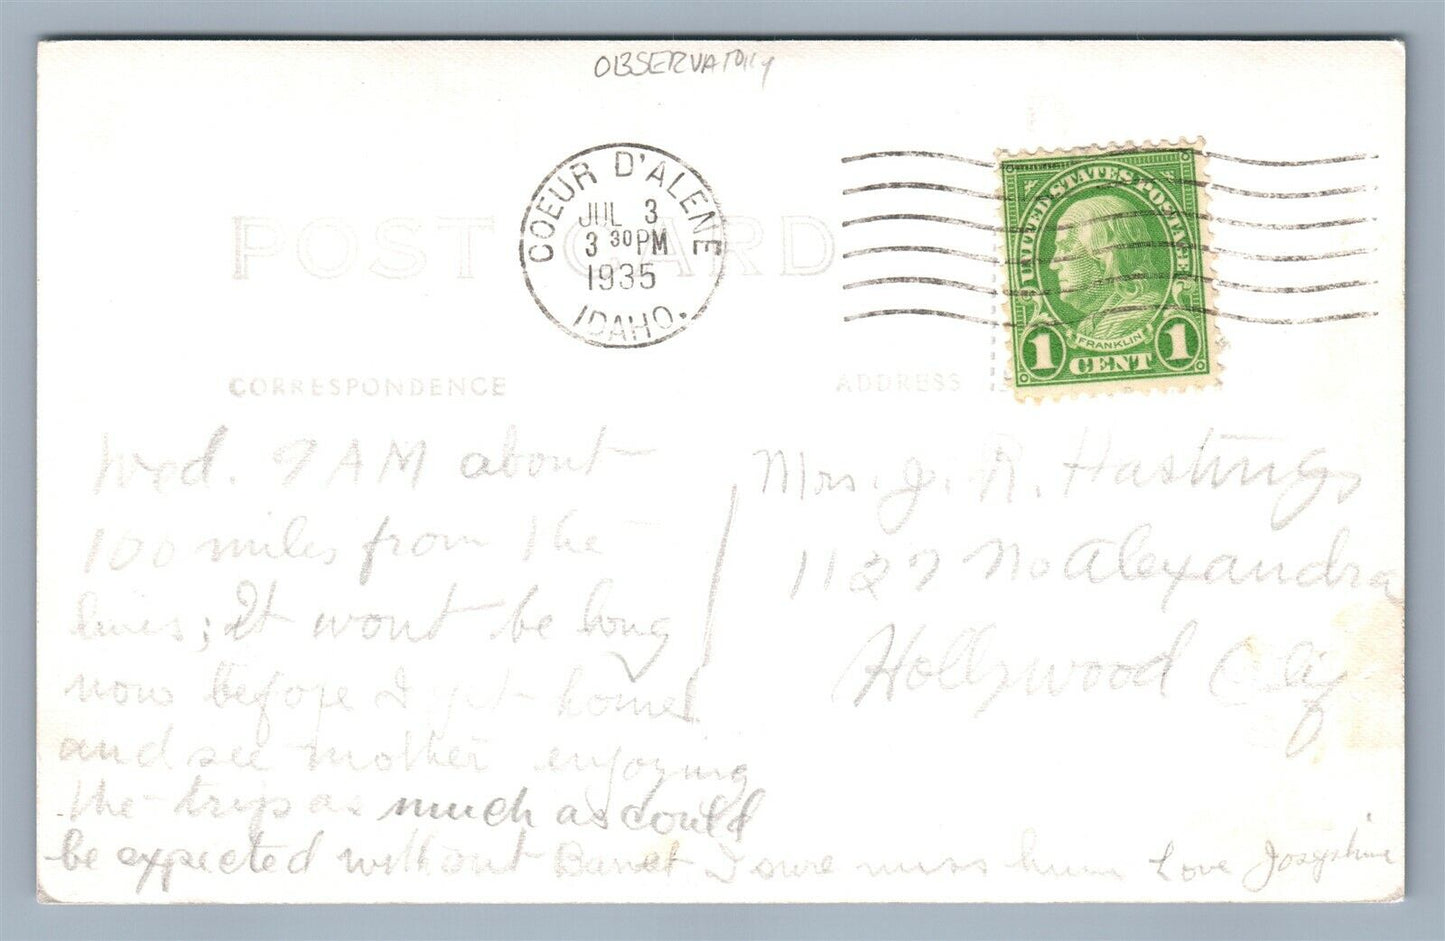 OBSERVATORY
POST CARD
COEUR D'ALENE
JUL 3
3 30 PM
1935
IDAHO.
UNITED STATES POSTAGE
FRANKLIN
1 CENT 1
CORRESPONDENCE
ADDRESS
Wed. 9 AM about
100 miles from the
lines; It wont be long
now before I get home
and see mother enjoying
the trip as much as could
be expected without I sure miss him Love Josephine
Mrs. J. R. Hastings
1127 No Alexandria
Hollywood Calif